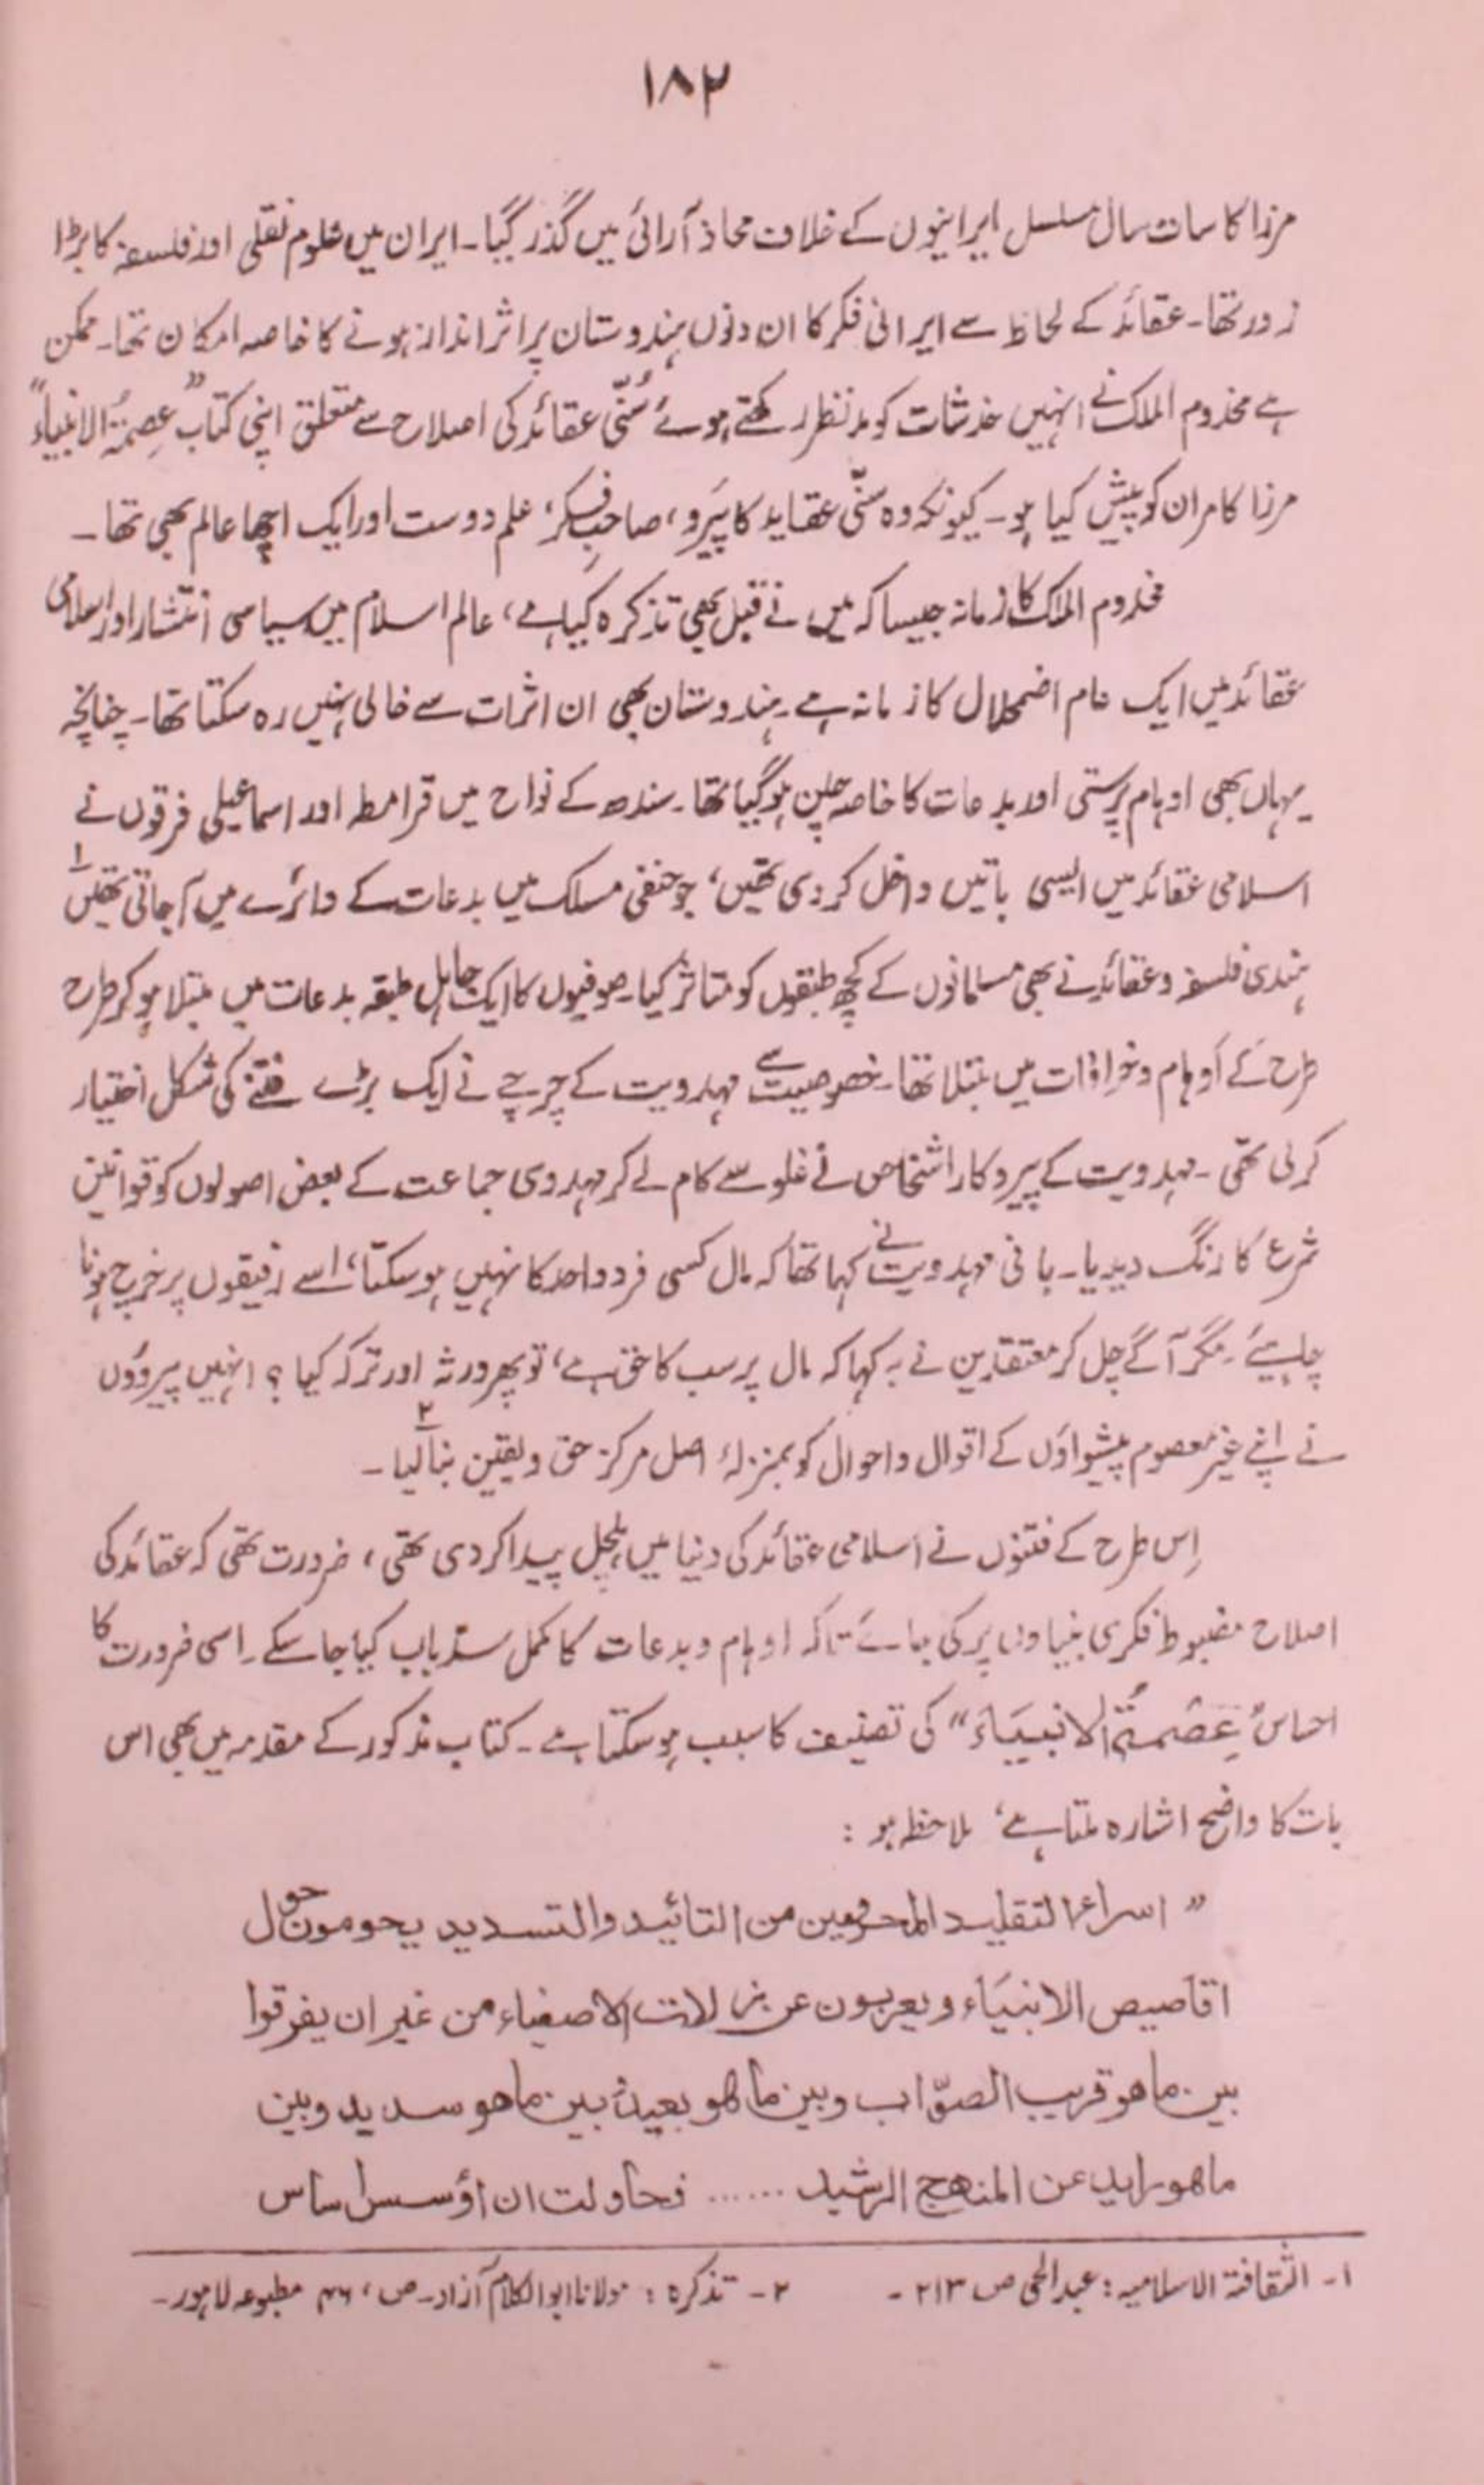 ۱۸۲
مرزا کا سات سال مسلسل ایرانیوں کے خلاف محاذ آرائی میں گذر گیا۔ ایران میں علوم نقلی اور فلسفہ کا بڑا
زور تھا۔ عقائد کے لحاظ سے ایرانی فکر کا ان دنوں ہندوستان پر اثر انداز ہونے کا خاصہ امکان تھا۔ ممکن
ہے مخدوم الملک نے انہیں خدشات کو مدنظر رکھتے ہوئے سُنّی عقائد کی اصلاح سے متعلق اپنی کتاب "عِصمۃُ الانبیاءؑ"
مرزا کامران کو پیش کیا ہو۔ کیونکہ وہ سنّی عقاید کا پَیرو، صاحبِ فکر، علم دوست اور ایک اچھا عالم بھی تھا۔
مخدوم الملک کا زمانہ جیسا کہ میں نے قبل بھی تذکرہ کیا ہے، عالم اسلام میں سیاسی انتشار اور اسلامی
عقائد میں ایک عام اضمحلال کا زمانہ ہے۔ ہندوستان بھی ان اثرات سے خالی نہیں رہ سکتا تھا۔ چنانچہ
یہاں بھی اوہام پرستی اور بدعات کا خاصہ چلن ہو گیا تھا۔ سندھ کے نواح میں قرامطہ اور اسماعیلی فرقوں نے
اسلامی عقائد میں ایسی باتیں داخل کر دی تھیں، جو حنفی مسلک میں بدعات کے دائرے میں آجاتی تھیں۱
ہندی فلسفہ و عقائد نے بھی مسلمانوں کے کچھ طبقوں کو متاثر کیا۔ صوفیوں کا ایک جاہل طبقہ بدعات میں مبتلا ہو کر طرح
طرح کے اوہام و خرافات میں مبتلا تھا۔ خصوصیت سے مہدویت کے چرچے نے ایک بڑے فتنے کی شکل اختیار
کرلی تھی۔ مہدویت کے پیروکار اشخاص نے غلو سے کام لے کر مہدوی جماعت کے بعض اصولوں کو قوانین
شرع کا رنگ دیدیا۔ بانی مہدویت نے کہا تھا کہ مال کسی فرد واحد کا نہیں ہو سکتا، اسے رفیقوں پر خرچ ہونا
چاہیئے۔ مگر آگے چل کر معتقدین نے یہ کہا کہ مال پر سب کا حق ہے، تو پھر ورثہ اور ترکہ کیا؟ انہیں پیروؤں
نے اپنے غیر معصوم پیشواؤں کے اقوال و احوال کو بمنزلۂ اصل مرکز حق و یقین بنا لیا۲۔
اِس طرح کے فتنوں نے اسلامی عقائد کی دنیا میں ہلچل پیدا کر دی تھی، ضرورت تھی کہ عقائد کی
اصلاح مضبوط فکری بنیادوں پر کی جائے تاکہ اوہام و بدعات کا مکمل سدّباب کیا جا سکے۔ اسی ضرورت کا
احساس "عِصْمۃُ الانبیَاءَ" کی تصنیف کا سبب ہو سکتا ہے۔ کتاب مذکور کے مقدمہ میں بھی اس
بات کا واضح اشارہ ملتا ہے، ملاحظہ ہو :
" اسراء التقلید المحرومین من التائید والتسدید یحومون حول
اقاصیص الانبیَاء و یعربون عن زلات الاصفیاء من غیر ان یفرقوا
بین ماھو قریب الصّواب وبین ماھو بعید و بین ماھو سدید وبین
ماھو راید عن المنھج الرشید ...... فحاولت ان اؤسس اساس
۱۔ الثقافۃ الاسلامیہ: عبدالحی ص ۲۱۳۔ ۲۔ تذکرہ: مولانا ابوالکلام آزاد۔ ص، ۴۶ مطبوعہ لاہور۔